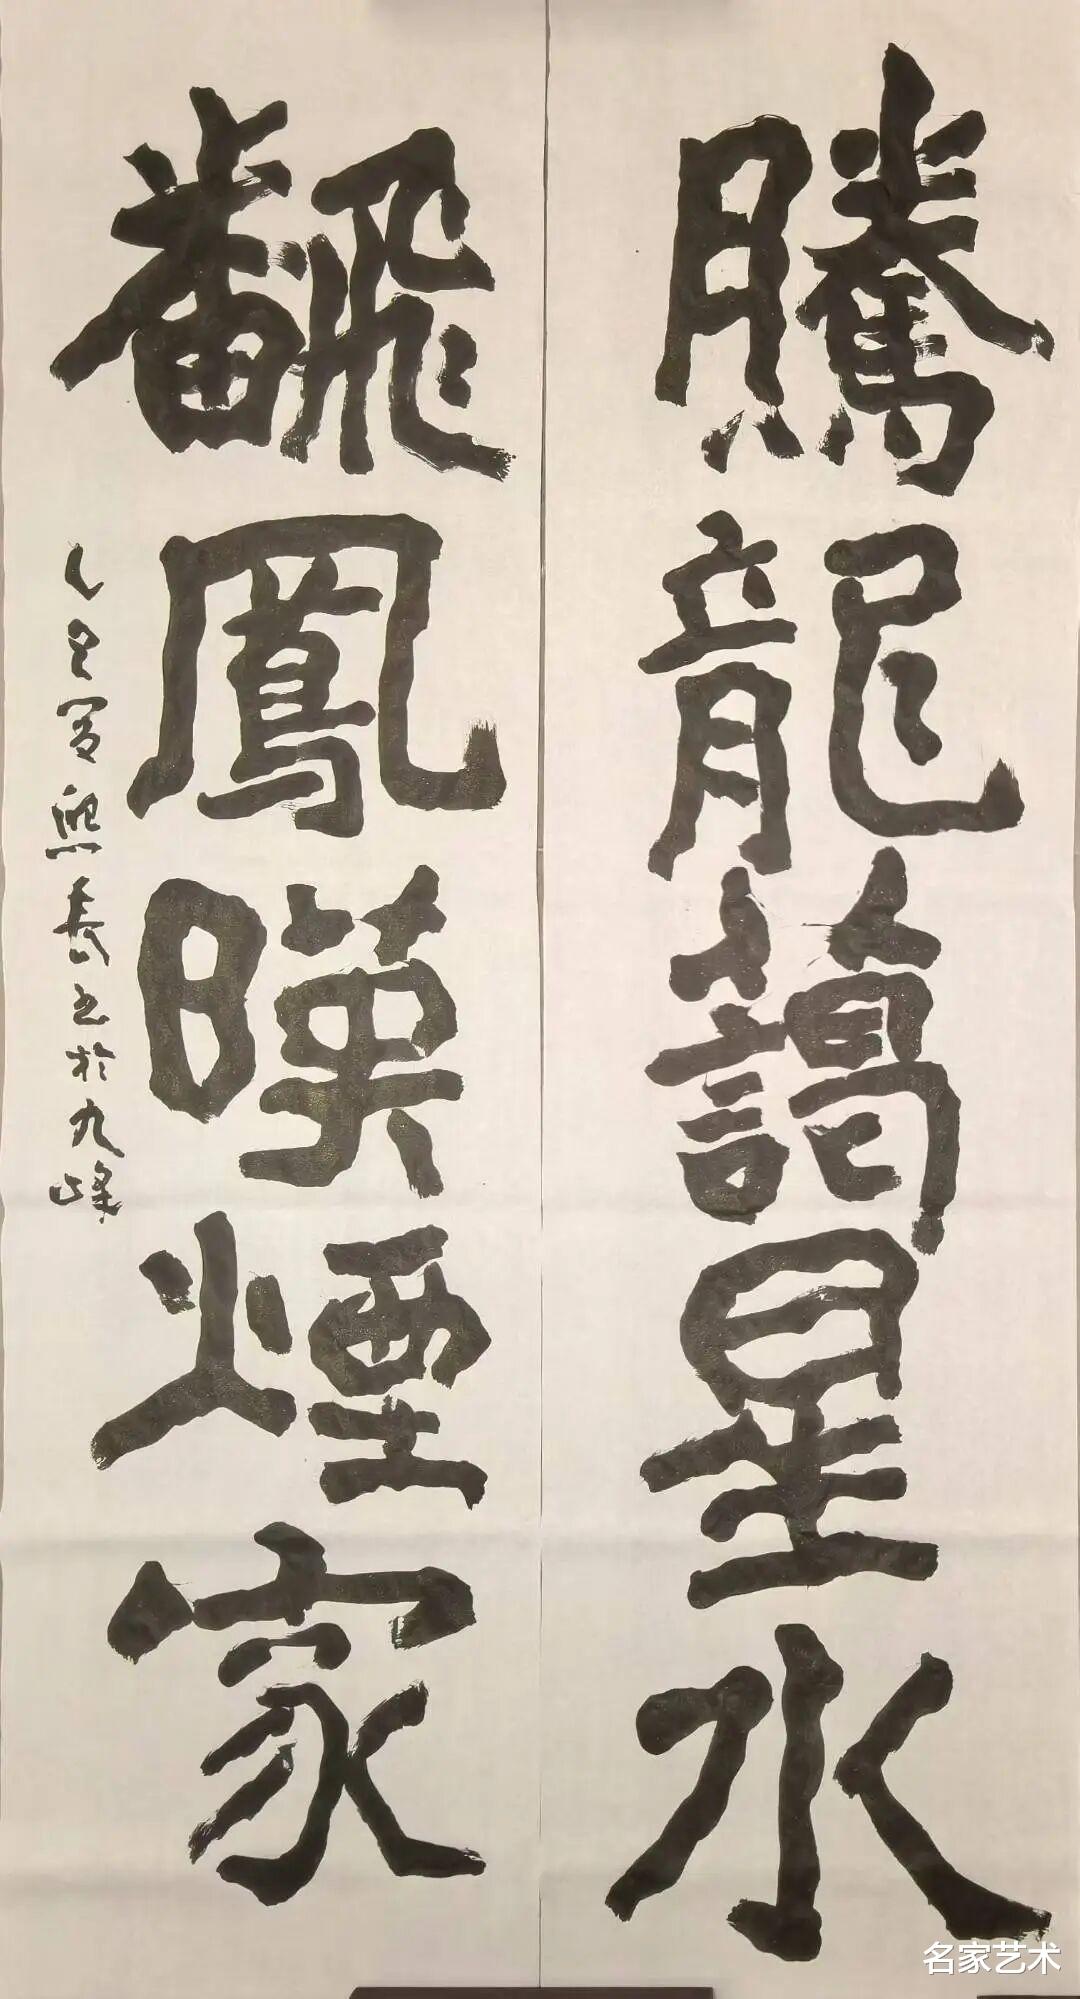 騰龍藹星水
飜鳳暎煙家
乙巳夏熙書於九峰
名家艺术